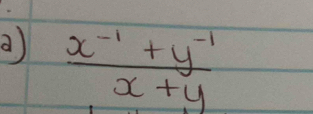 a) (x⁻¹ + y⁻¹) / (x + y)